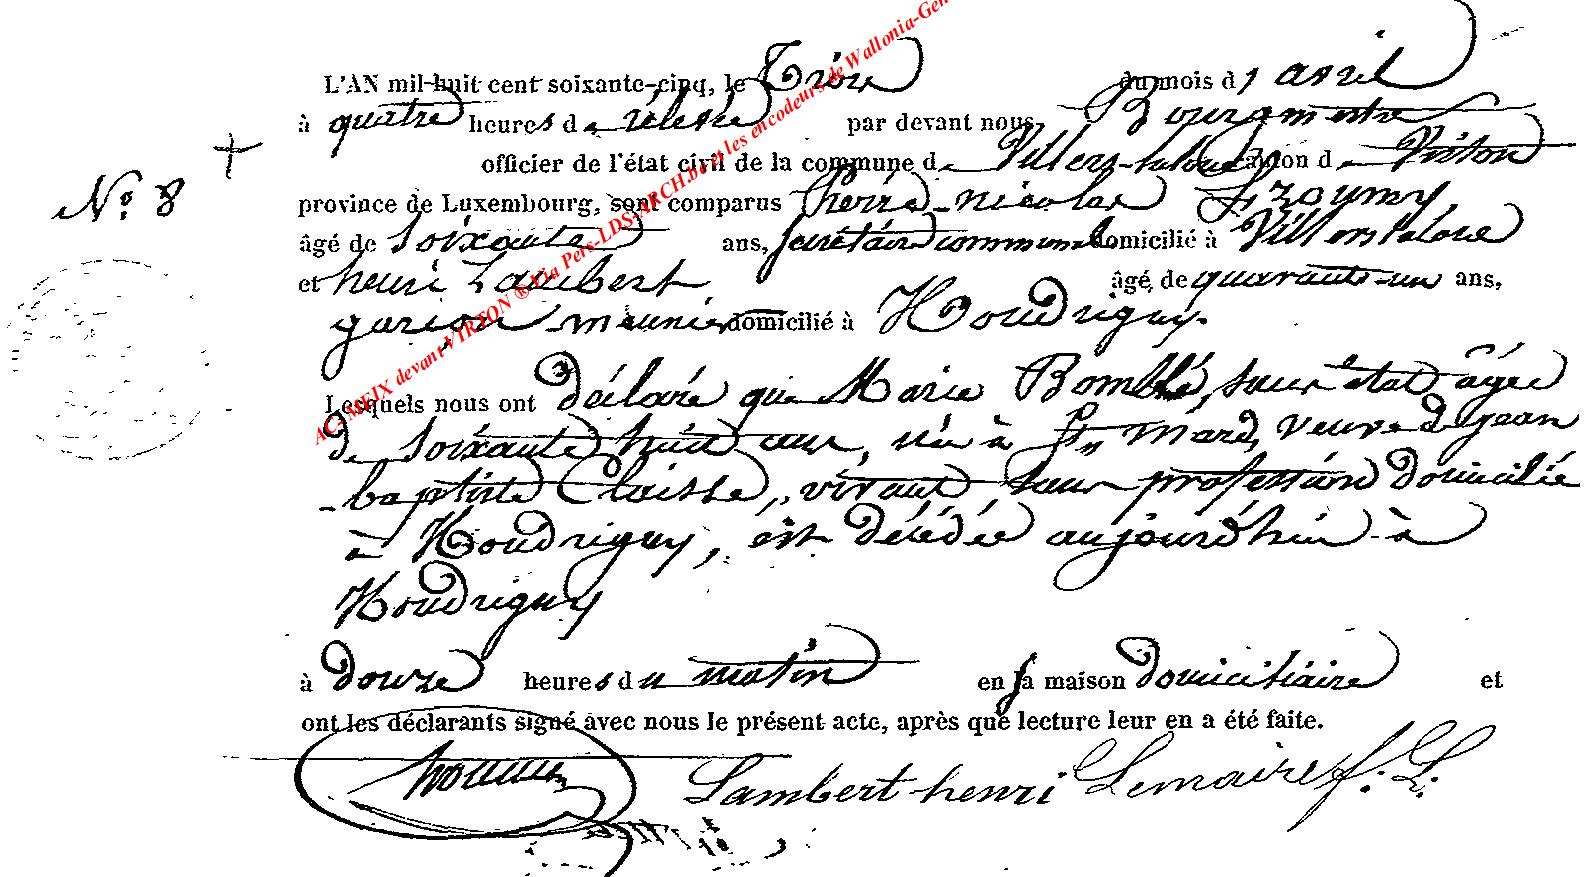 L'AN mil-huit cent soixante-cinq, le Trois du mois d'avril
à quatre heures de relevée par devant nous Bourgmestre
officier de l'état civil de la commune de Villers-laloue canton de Virton
N° 8
province de Luxembourg, sont comparus pierre-nicolas
âgé de soixante ans, secrétaire communal domicilié à Villerslaloue
et henri Lambert âgé de quarante-un ans,
garçon meunier domicilié à Houdrigny.
Lesquels nous ont déclaré que Marie Bomblé, sans état âgée
de soixante huit ans, née à St Mard, veuve de jean
-baptiste Claisse, vivant sans profession domiciliée
à Houdrigny, est décédée aujourd'hui à
Houdrigny
à douze heures du matin en sa maison domiciliaire et
ont les déclarants signé avec nous le présent acte, après que lecture leur en a été faite.
Lambert henri Lemaire f. L.
AC-MEIX devant VIRTON ® Via Pers-LDS-ARCH.be et les encodeurs de Wallonia-Gen